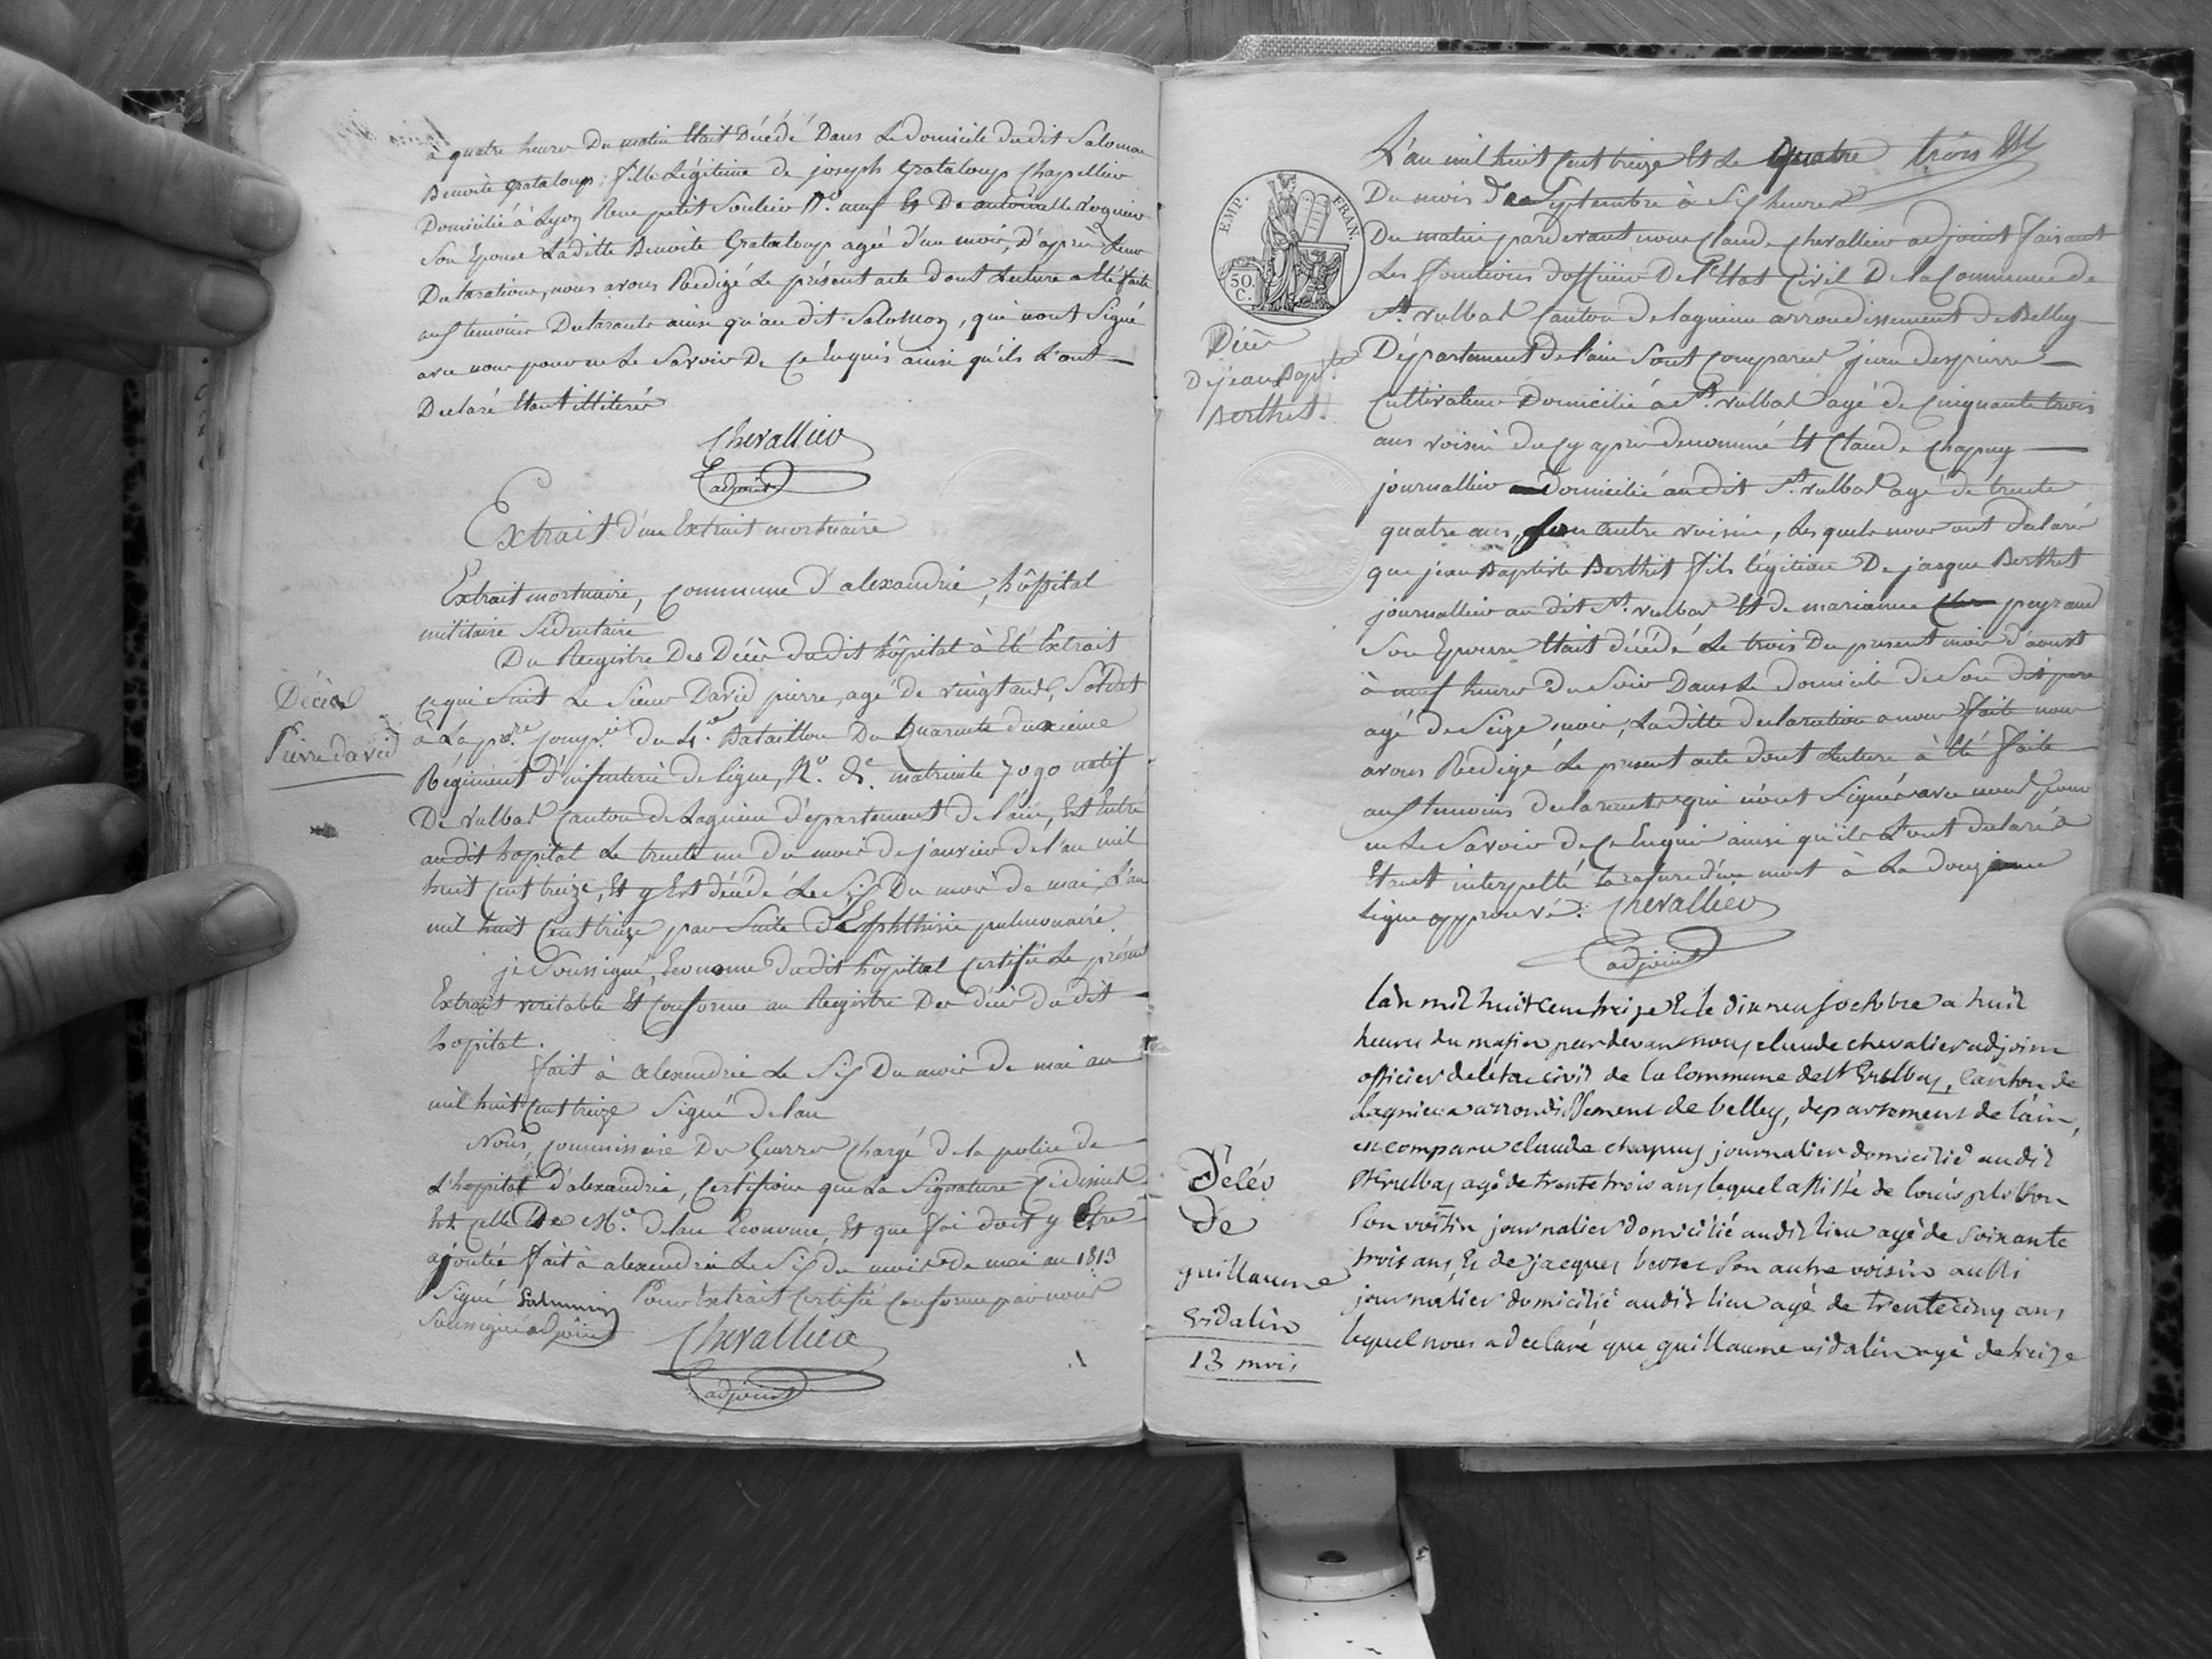 à quatre heures Du matin Etait Décédé Dans Le domicile du dit Salomon
Benoite Grataloup, fille Légitime de joseph Grataloup Chapellier
Domicilié à Lyon Rue petit Soulier N.o neuf Et De antoinette
Son Epouse Laditte Benoite Grataloup agée d'un mois, D'après Leur
Declaration, nous avons Rédigé Le présent acte dont Lecture a été faite
aux temoins Declarants ainsi qu'au dit Salomon, qui n'ont Signé
avec nous pour ne Le Savoir De Ce Enquis ainsi qu'ils L'ont
Declaré Etant illiterés
Chevallier
adjoint
Extrait d'un Extrait mortuaire
Extrait mortuaire, commune d'alexandrie, hôpital
militaire Sédentaire
Du Registre Des Décès dudit hôpital à Eté Extrait
Décès
Pierre david
ce qui Suit Le Sieur David pierre, agé de vingt ans, Soldat
à La p.re Comp.ie du 4.e Bataillon Du Quarante deuxième
Régiment d'infanterie de Ligne, N.o de matricule 7090 natif
De vulbas Canton de Lagnieu département de l'ain, Est Entré
audit hopital Le trente un Du mois de janvier de l'an mil
huit Cent treize, Et y Est décédé Le Six Du mois de mai, L'an
mil huit Cent treize par Suite D'Ephthisie pulmonaire.
je Soussigné, Econome dudit hôpital Certifie Le présent
Extrait veritable Et Conforme au Registre Des décès dudit
hopital.
fait à alexandrie Le Six Du mois De mai an
mil huit Cent treize Signé delau
Nous, commissaire Des Guerres Chargé de la police de
L'hopital d'alexandrie, Certifions que La Signature Ci dessus
Est Celle De M.r delau Econome, Et que foi doit y Etre
ajoutée fait à alexandrie Le Six du mois de mai an 1813
Signé Pour Extrait Certifié Conforme par nous
Soussigné adjoint
Chevallier
adjoint
L'an mil huit Cent treize Et Le Quatre trois
Du mois De Septembre à Six heures
EMP. FRAN.
50. C.
Du matin pardevant nous Claude Chevallier adjoint faisant
Les fonctions d'officier De l'Etat Civil De la Commune de
St. vulbas Canton de lagnieu arrondissement de Belley
Décès
De jean Bap.te
Berthet.
Département de l'ain Sont Comparus jean despierre
Cultivateur Domicilié à St. vulbas agé de Cinquante trois
ans voisin du Cy après denommé Et Claude Chapuy
journallier Domicilié audit St. vulbas agé de trente
quatre ans, Son autre voisin, Lesquels nous ont declaré
que jean Baptiste Berthet fils légitime De jaque Berthet
journallier au dit St. vulbas Et de marianne peyraud
Son Epouse Etait décédé Le trois Du present mois d'aoust
à neuf heures Du Soir Dans Le domicile de Son dit pere
agé de Seize mois, La ditte declaration a nous faite nous
avons Rédigé Le present acte dont Lecture à Eté faite
aux temoins declarants qui n'ont Signés avec nous pour
ne Le Savoir De Ce Enquis ainsi qu'ils L'ont declarés
Etant interpellé La rasure d'un mot à La douzieme
Ligne approuvé. Chevallier
adjoint
lan mil huit cent treize Et le dix neuf octobre a huit
heures du matin pardevant nous claude chevalier adjoint
officier de létat civil de la Commune de St Vulbas, canton de
Lagnieu arrondissement de belley, département de l'ain,
est comparu claude chapuy journalier domicilié audit
St Vulbas agé de trente trois ans lequel assisté de louis
Décés
De
guillaume
vidalin
13 mois
Son voisin journalier domicilié audit lieu agé de soixante
trois ans, Et de jacques Son autre voisin aussi
journalier domicilié audit lieu agé de trente cinq ans,
lequel nous a declaré que guillaume vidalin agé de treize